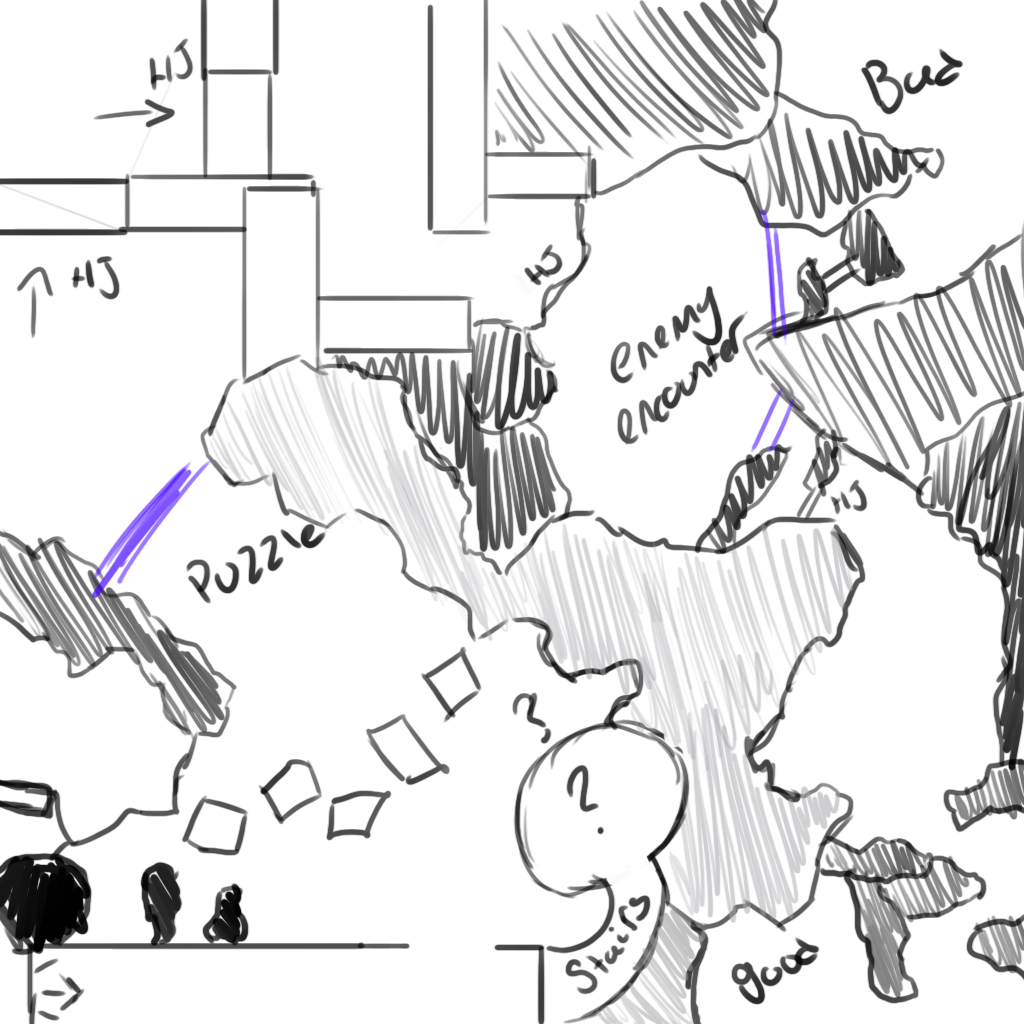 HJ
Bad
HJ
HJ
enemy
encounter
HJ
Puzzle
?
?
Stairs
good